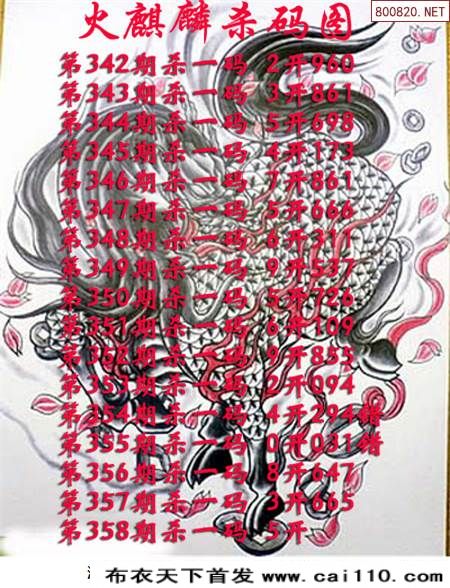 火麒麟杀码图
800820.NET
第342期杀一码 2开960
第343期杀一码 3开861
第344期杀一码 5开698
第345期杀一码 4开173
第346期杀一码 7开861
第347期杀一码 5开666
第348期杀一码 6开311
第349期杀一码 9开537
第350期杀一码 5开726
第351期杀一码 6开109
第352期杀一码 9开855
第351期杀一码 2开094
第354期杀一码 4开294错
第355期杀一码 0开031错
第356期杀一码 8开647
第357期杀一码 3开665
第358期杀一码 5开
布衣天下首发 www.cai110.com